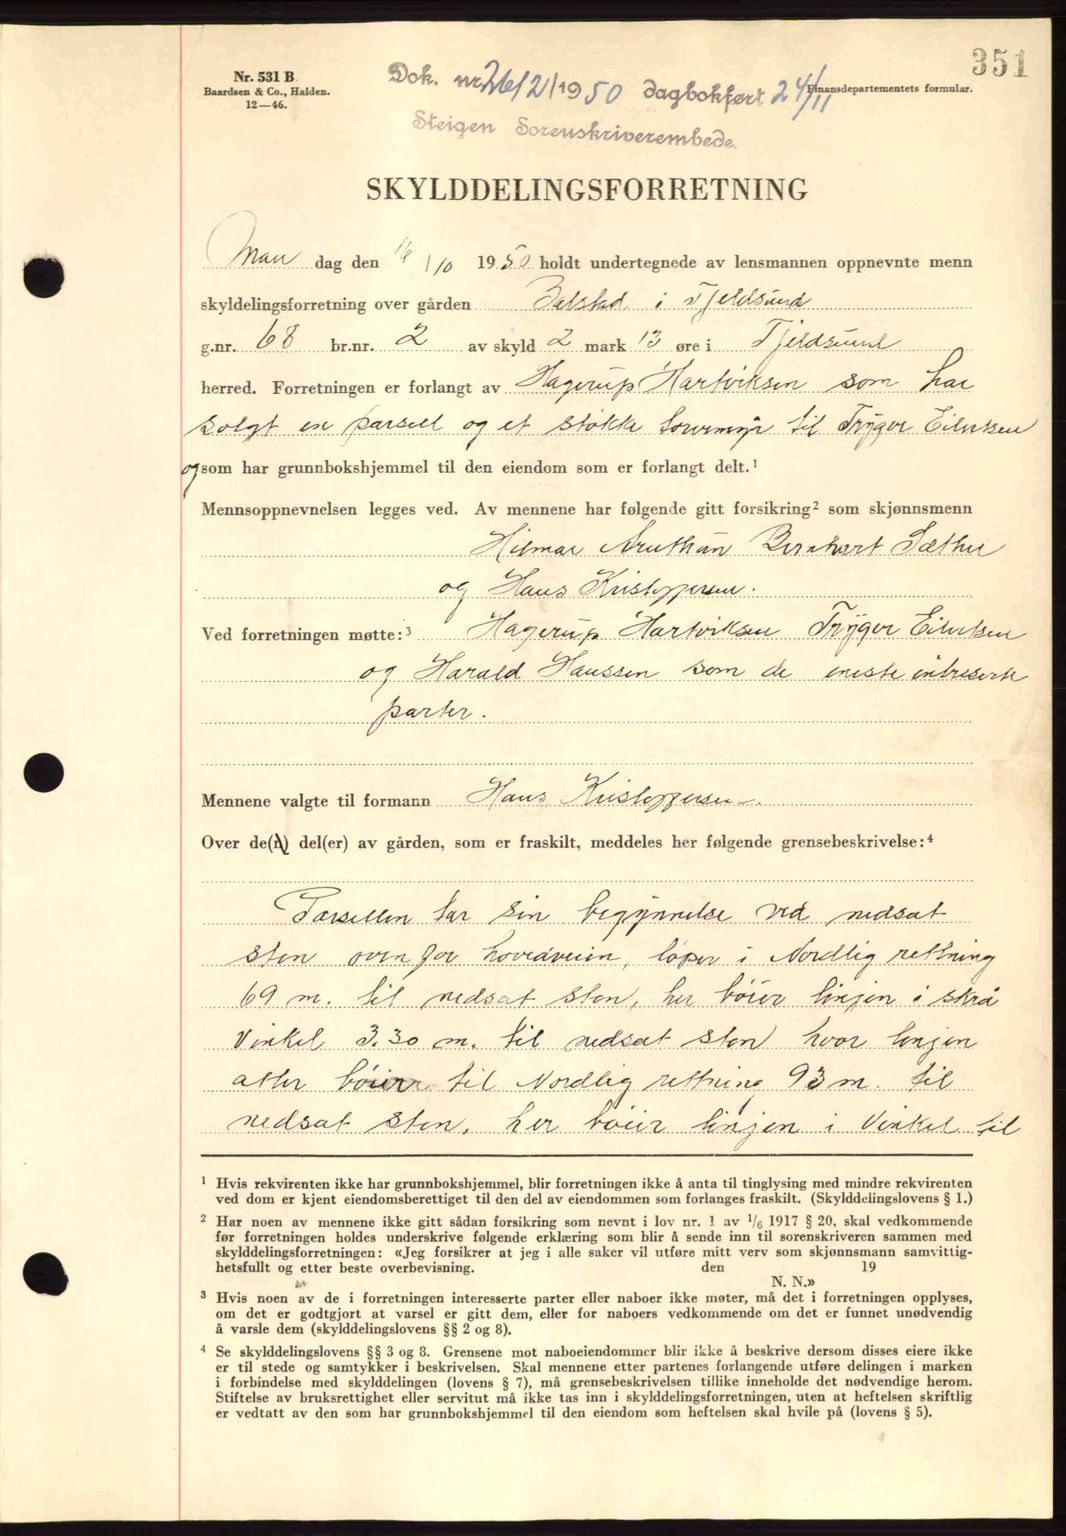 351
Nr. 531 B
Baardsen & Co., Halden.
12—46.
Dok. nr 2612/1950 dagbokført 24/11
Finansdepartementets formular.
Steigen Sorenskriverembede
SKYLDDELINGSFORRETNING
Man dag den 16/10 1950 holdt undertegnede av lensmannen oppnevnte menn
skyldelingsforretning over gården Balstad i Tjeldsund
g.nr. 68 br.nr. 2 av skyld 2 mark 13 øre i Tjeldsund
herred. Forretningen er forlangt av Hagerup Hartviksen som har
solgt en parsell og et støkke torvmyr til Trygve Eilertsen
og som har grunnbokshjemmel til den eiendom som er forlangt delt.¹
Mennsoppnevnelsen legges ved. Av mennene har følgende gitt forsikring² som skjønnsmenn
Hilmar Bernhart Sæther
og Hans Kristoffersen.
Ved forretningen møtte:³ Hagerup Hartviksen Trygve Eilertsen
og Harald Hanssen som de eneste intreserte
parter.
Mennene valgte til formann Hans Kristoffersen.
Over de(n) del(er) av gården, som er fraskilt, meddeles her følgende grensebeskrivelse:⁴
Parsellen tar sin begynnelse ved nedsat
sten ovenfor hovedveien, løper i Nordlig rettning
69 m. til nedsat sten, her bøier linjen i skrå
vinkel 3.30 m. til nedsat sten hvor linjen
atter bøier til Nordlig rettning 93 m. til
nedsat sten, her bøier linjen i Vinkel til
¹ Hvis rekvirenten ikke har grunnbokshjemmel, blir forretningen ikke å anta til tinglysing med mindre rekvirenten
ved dom er kjent eiendomsberettiget til den del av eiendommen som forlanges fraskilt. (Skylddelingslovens § 1.)
² Har noen av mennene ikke gitt sådan forsikring som nevnt i lov nr. 1 av 1/6 1917 § 20, skal vedkommende
før forretningen holdes underskrive følgende erklæring som blir å sende inn til sorenskriveren sammen med
skylddelingsforretningen: «Jeg forsikrer at jeg i alle saker vil utføre mitt verv som skjønnsmann samvittig-
hetsfullt og etter beste overbevisning. den 19
N. N.»
³ Hvis noen av de i forretningen interesserte parter eller naboer ikke møter, må det i forretningen opplyses,
om det er godtgjort at varsel er gitt dem, eller for naboers vedkommende om det er funnet unødvendig
å varsle dem (skylddelingslovens §§ 2 og 8).
⁴ Se skylddelingslovens §§ 3 og 8. Grensene mot naboeiendommer blir ikke å beskrive dersom disses eiere ikke
er til stede og samtykker i beskrivelsen. Skal mennene etter partenes forlangende utføre delingen i marken
i forbindelse med skylddelingen (lovens § 7), må grensebeskrivelsen tillike inneholde det nødvendige herom.
Stiftelse av bruksrettighet eller servitut må ikke tas inn i skylddelingsforretningen, uten at heftelsen skriftlig
er vedtatt av den som har grunnbokshjemmel til den eiendom som heftelsen skal hvile på (lovens § 5).